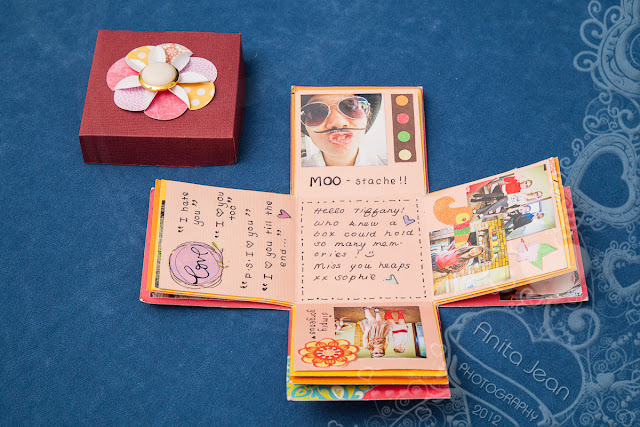 MOO - stache!!
"I hate
you"
"I ♡ you
too"
"P.S. I ♡ you"
"I ♡ you till the
end..."
Love
Hello Tiffany!
Who knew a
box could hold
so many mem-
ories ! ☺
Miss you heaps
xx sophie
simply
gorgeous
Anita Jean
PHOTOGRAPHY
2012